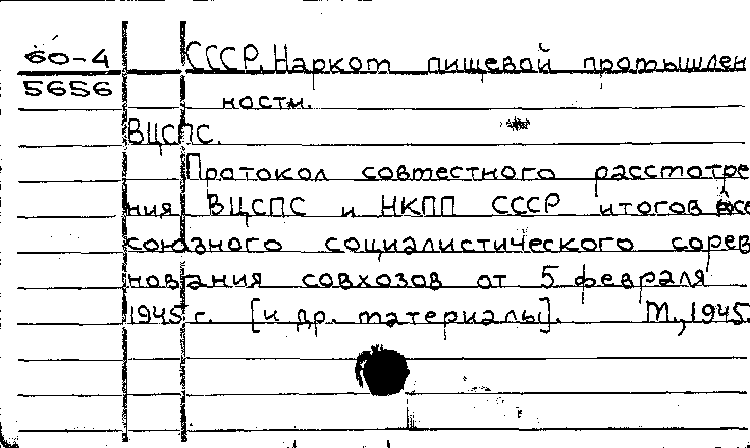 60-4
5656
СССР. Наркот пищевой промышлен
ности.
ВЦСПС.
Протокол совместного рассмотре
ния ВЦСПС и НКПП СССР итогов Все
союзного социалистического сорев
нования совхозов от 5 февраля
1945 г. [и др. материалы]. М., 1945.